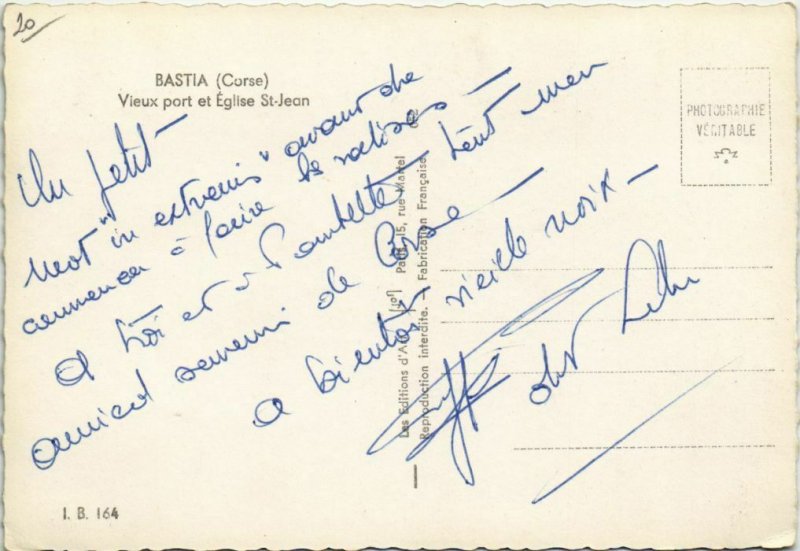 20
BASTIA (Corse)
Vieux port et Église St-Jean
PHOTOGRAPHIE
VÉRITABLE
Un petit
mot "in extremis" avant de
commencer à faire les valises –
A toi et à Paulette tout mon
amical souvenir de Corse –
a bientôt vieille noix –
Les Editions d'Art Paris, 15, rue Martel
Reproduction interdite. — Fabrication Française.
I. B. 164